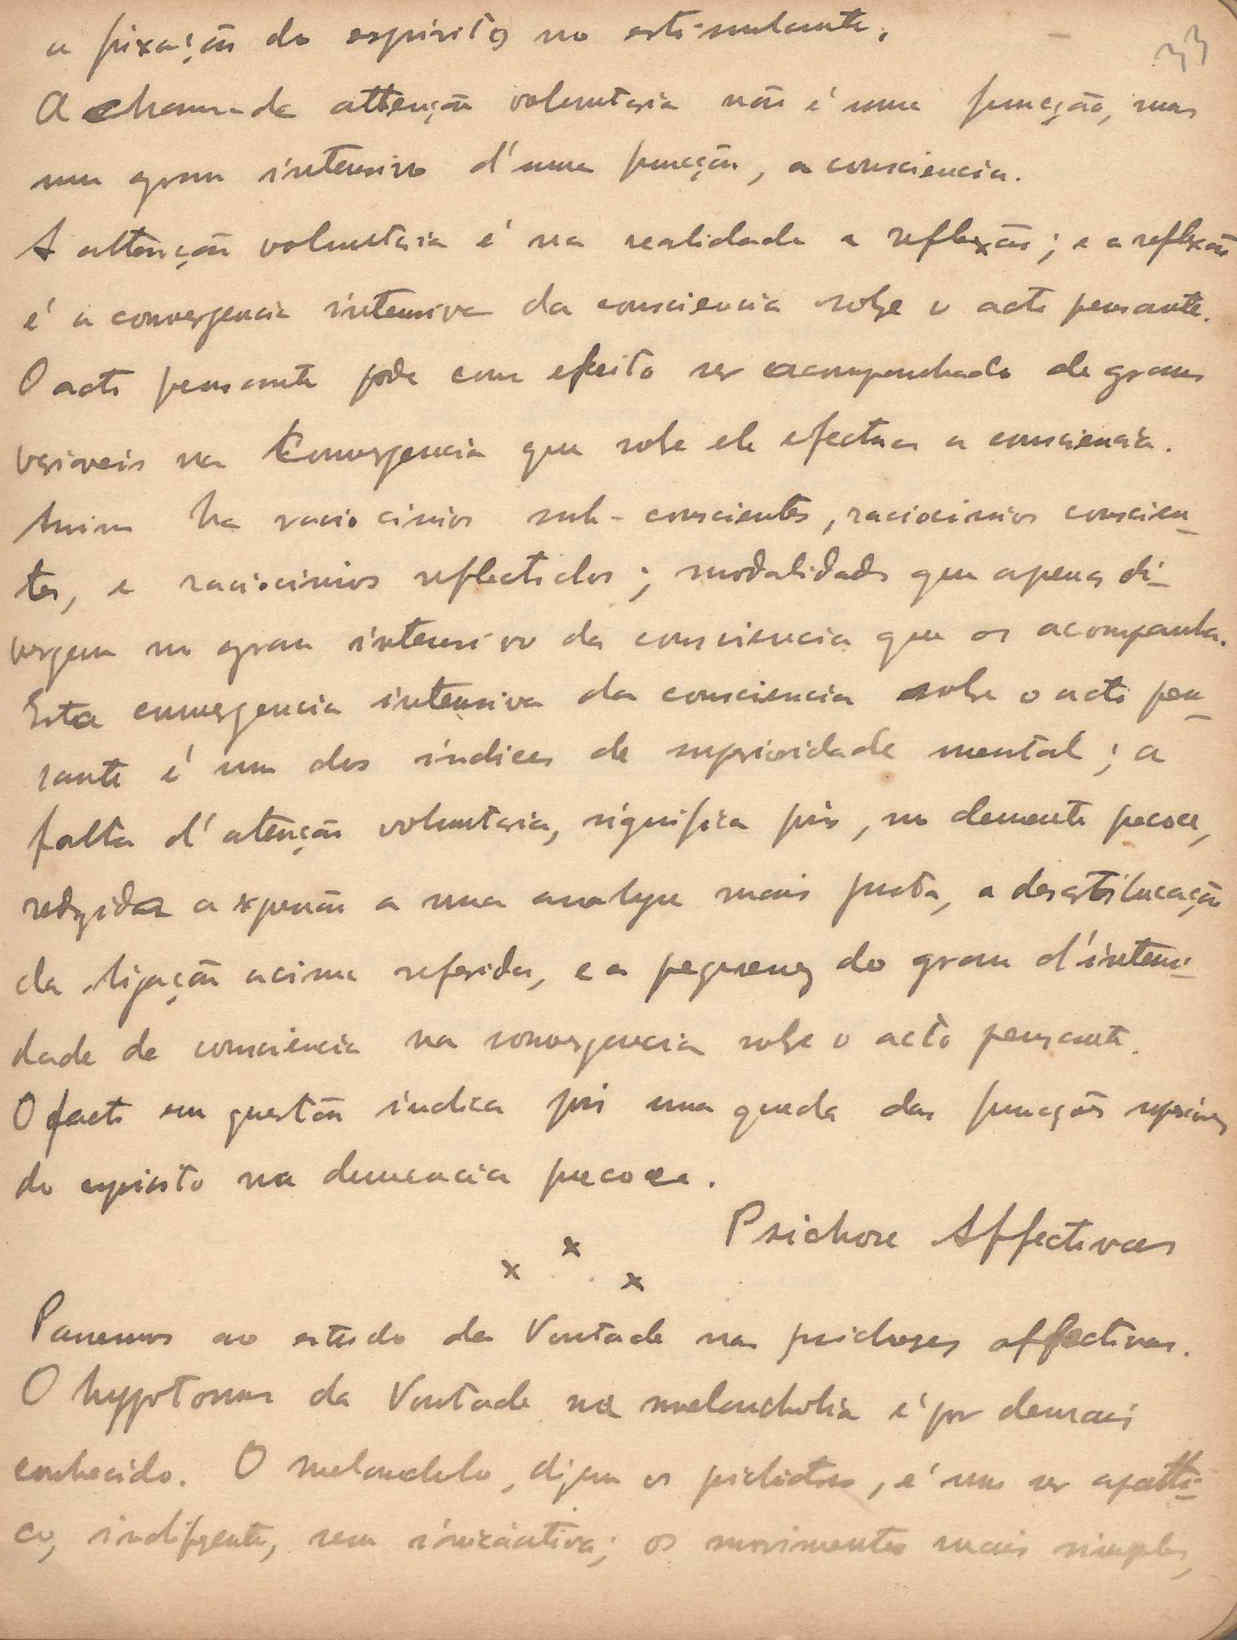 33
a fixação do espirito no estimulante.
A chamada attenção voluntaria não é uma funcção, mas
um grau intensivo d'uma funcção, a consciencia.
A attenção voluntaria é na realidade a reflexão; e a reflexão
é a convergencia intensiva da consciencia sobre o acto pensante.
O acto pensante pode com efeito ser acompanhado de graus
variaveis na convergencia que sobre ele efectua a consciencia.
Assim ha raciocinios sub-conscientes, raciocinios conscien-
tes, e raciocinios reflectidos; modalidades que apenas di-
vergem no grau intensivo da consciencia que os acompanha.
Esta convergencia intensiva da consciencia sobre o acto pen-
sante é um dos indices de superioridade mental; a
falta d'atenção voluntaria, significa pois, no demente precoce,
redusida a expressão a uma analyse mais justa, a desarticulação
da ligação acima referida, e a pequenez do grau d'intensi-
dade de consciencia na convergencia sobre o acto pensante.
O facto em questão indica pois uma queda das funcções superiores
do espirito na demencia precoce.
Psichose Affectivas
x x x
Passemos ao estudo da Vontade nas psichoses affectivas.
O hypotonus da Vontade na melancholia é por demais
conhecido. O melancholo, dizem os psichiatras, é um ser apathi-
co, indifferente, sem iniciativa; os movimentos mais simples,